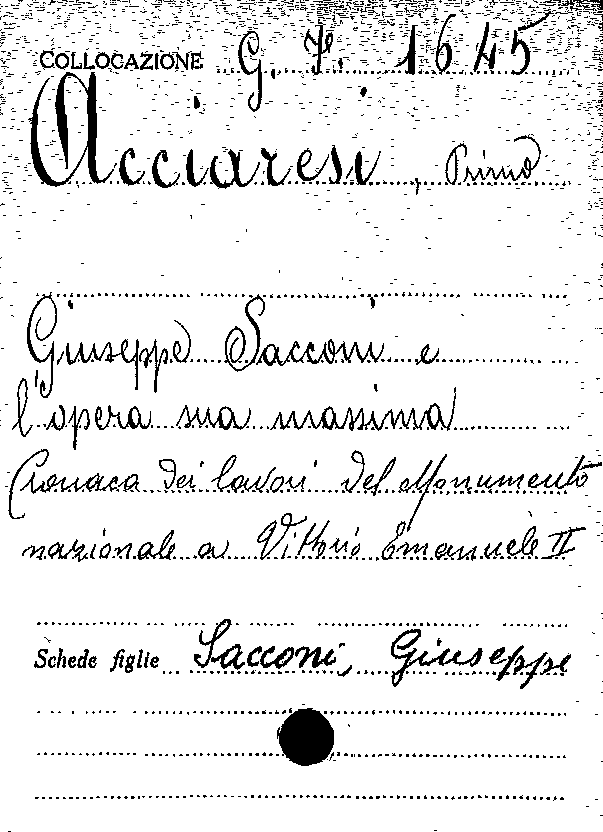 COLLOCAZIONE G. F. 1645
Acciaresi, Primo
Giuseppe Sacconi e
l'opera sua massima
Cronaca dei lavori del Monumento
nazionale a Vittorio Emanuele II
Schede figlie Sacconi, Giuseppe